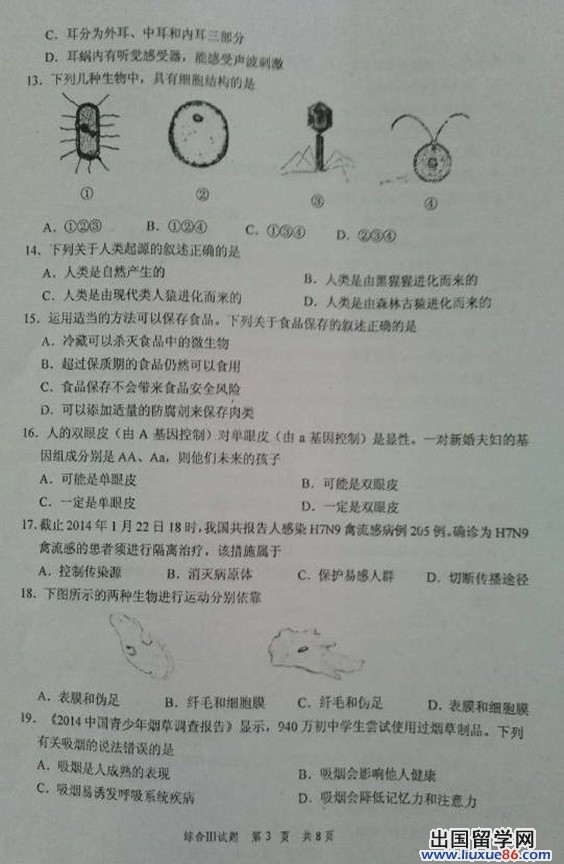 C. 耳分为外耳、中耳和内耳三部分
D. 耳蜗内有听觉感受器，能感受声波刺激
13. 下列几种生物中，具有细胞结构的是
① ② ③ ④
A. ①②③ B. ①②④ C. ①③④ D. ②③④
14. 下列关于人类起源的叙述正确的是
A. 人类是自然产生的 B. 人类是由黑猩猩进化而来的
C. 人类是由现代类人猿进化而来的 D. 人类是由森林古猿进化而来的
15. 运用适当的方法可以保存食品。下列关于食品保存的叙述正确的是
A. 冷藏可以杀灭食品中的微生物
B. 超过保质期的食品仍然可以食用
C. 食品保存不会带来食品安全风险
D. 可以添加适量的防腐剂来保存肉类
16. 人的双眼皮（由 A 基因控制）对单眼皮（由 a 基因控制）是显性。一对新婚夫妇的基
因组成分别是 AA、Aa，则他们未来的孩子
A. 可能是单眼皮 B. 可能是双眼皮
C. 一定是单眼皮 D. 一定是双眼皮
17. 截止 2014 年 1 月 22 日 18 时，我国共报告人感染 H7N9 禽流感病例 205 例。确诊为 H7N9
禽流感的患者须进行隔离治疗，该措施属于
A. 控制传染源 B. 消灭病原体 C. 保护易感人群 D. 切断传播途径
18. 下图所示的两种生物进行运动分别依靠
A. 表膜和伪足 B. 纤毛和细胞膜 C. 纤毛和伪足 D. 表膜和细胞膜
19. 《2014 中国青少年烟草调查报告》显示，940 万初中学生尝试使用过烟草制品。下列
有关吸烟的说法错误的是
A. 吸烟是人成熟的表现 B. 吸烟会影响他人健康
C. 吸烟易诱发呼吸系统疾病 D. 吸烟会降低记忆力和注意力
综合III试题 第 3 页 共 8 页
出国留学网
www.liuxue86.com